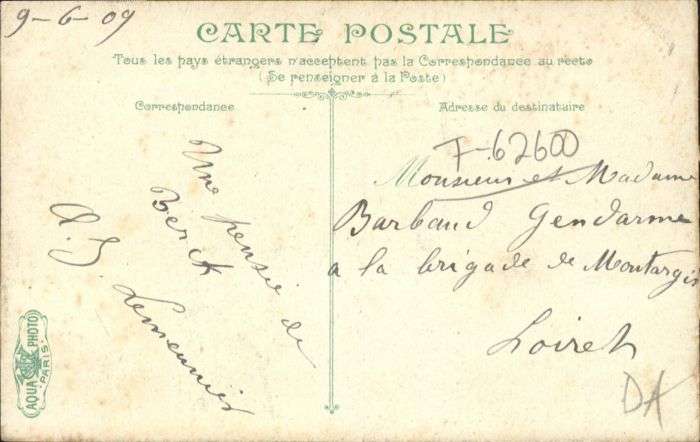 9-6-09
CARTE POSTALE
Tous les pays étrangers n'acceptent pas la Correspondance au recto
(Se renseigner à la Poste)
Correspondance
Adresse du destinataire
Une pensée de
Berck
A. G. Lemeunier
F-62600
Monsieur et Madame
Barbaud Gendarme
a la brigade de Montargis
Loiret
DA
AQUA PHOTO
PARIS